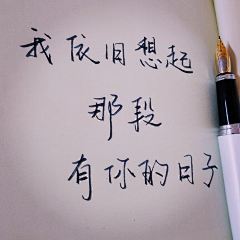 我依旧想起
那段
有你的日子